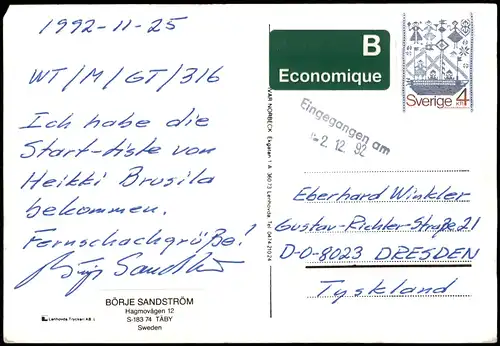 1992-11-25
WT/M/GT/316
Ich habe die
Start-liste von
Heikki Brusila
bekommen.
Fernschachgrüße!
BÖRJE SANDSTRÖM
Hagmovägen 12
S-183 74 TÄBY
Sweden
Lenhovda Tryckeri AB
IVAR NORBECK, Esgatan 1 A, 360 73 Lenhovda Tel 0474/2024
B
Economique
Sverige 4
Eingegangen am
-2. 12. 92
Eberhard Winkler
Gustav-Richter-Straße 21
D-O-8023 DRESDEN
Tyskland